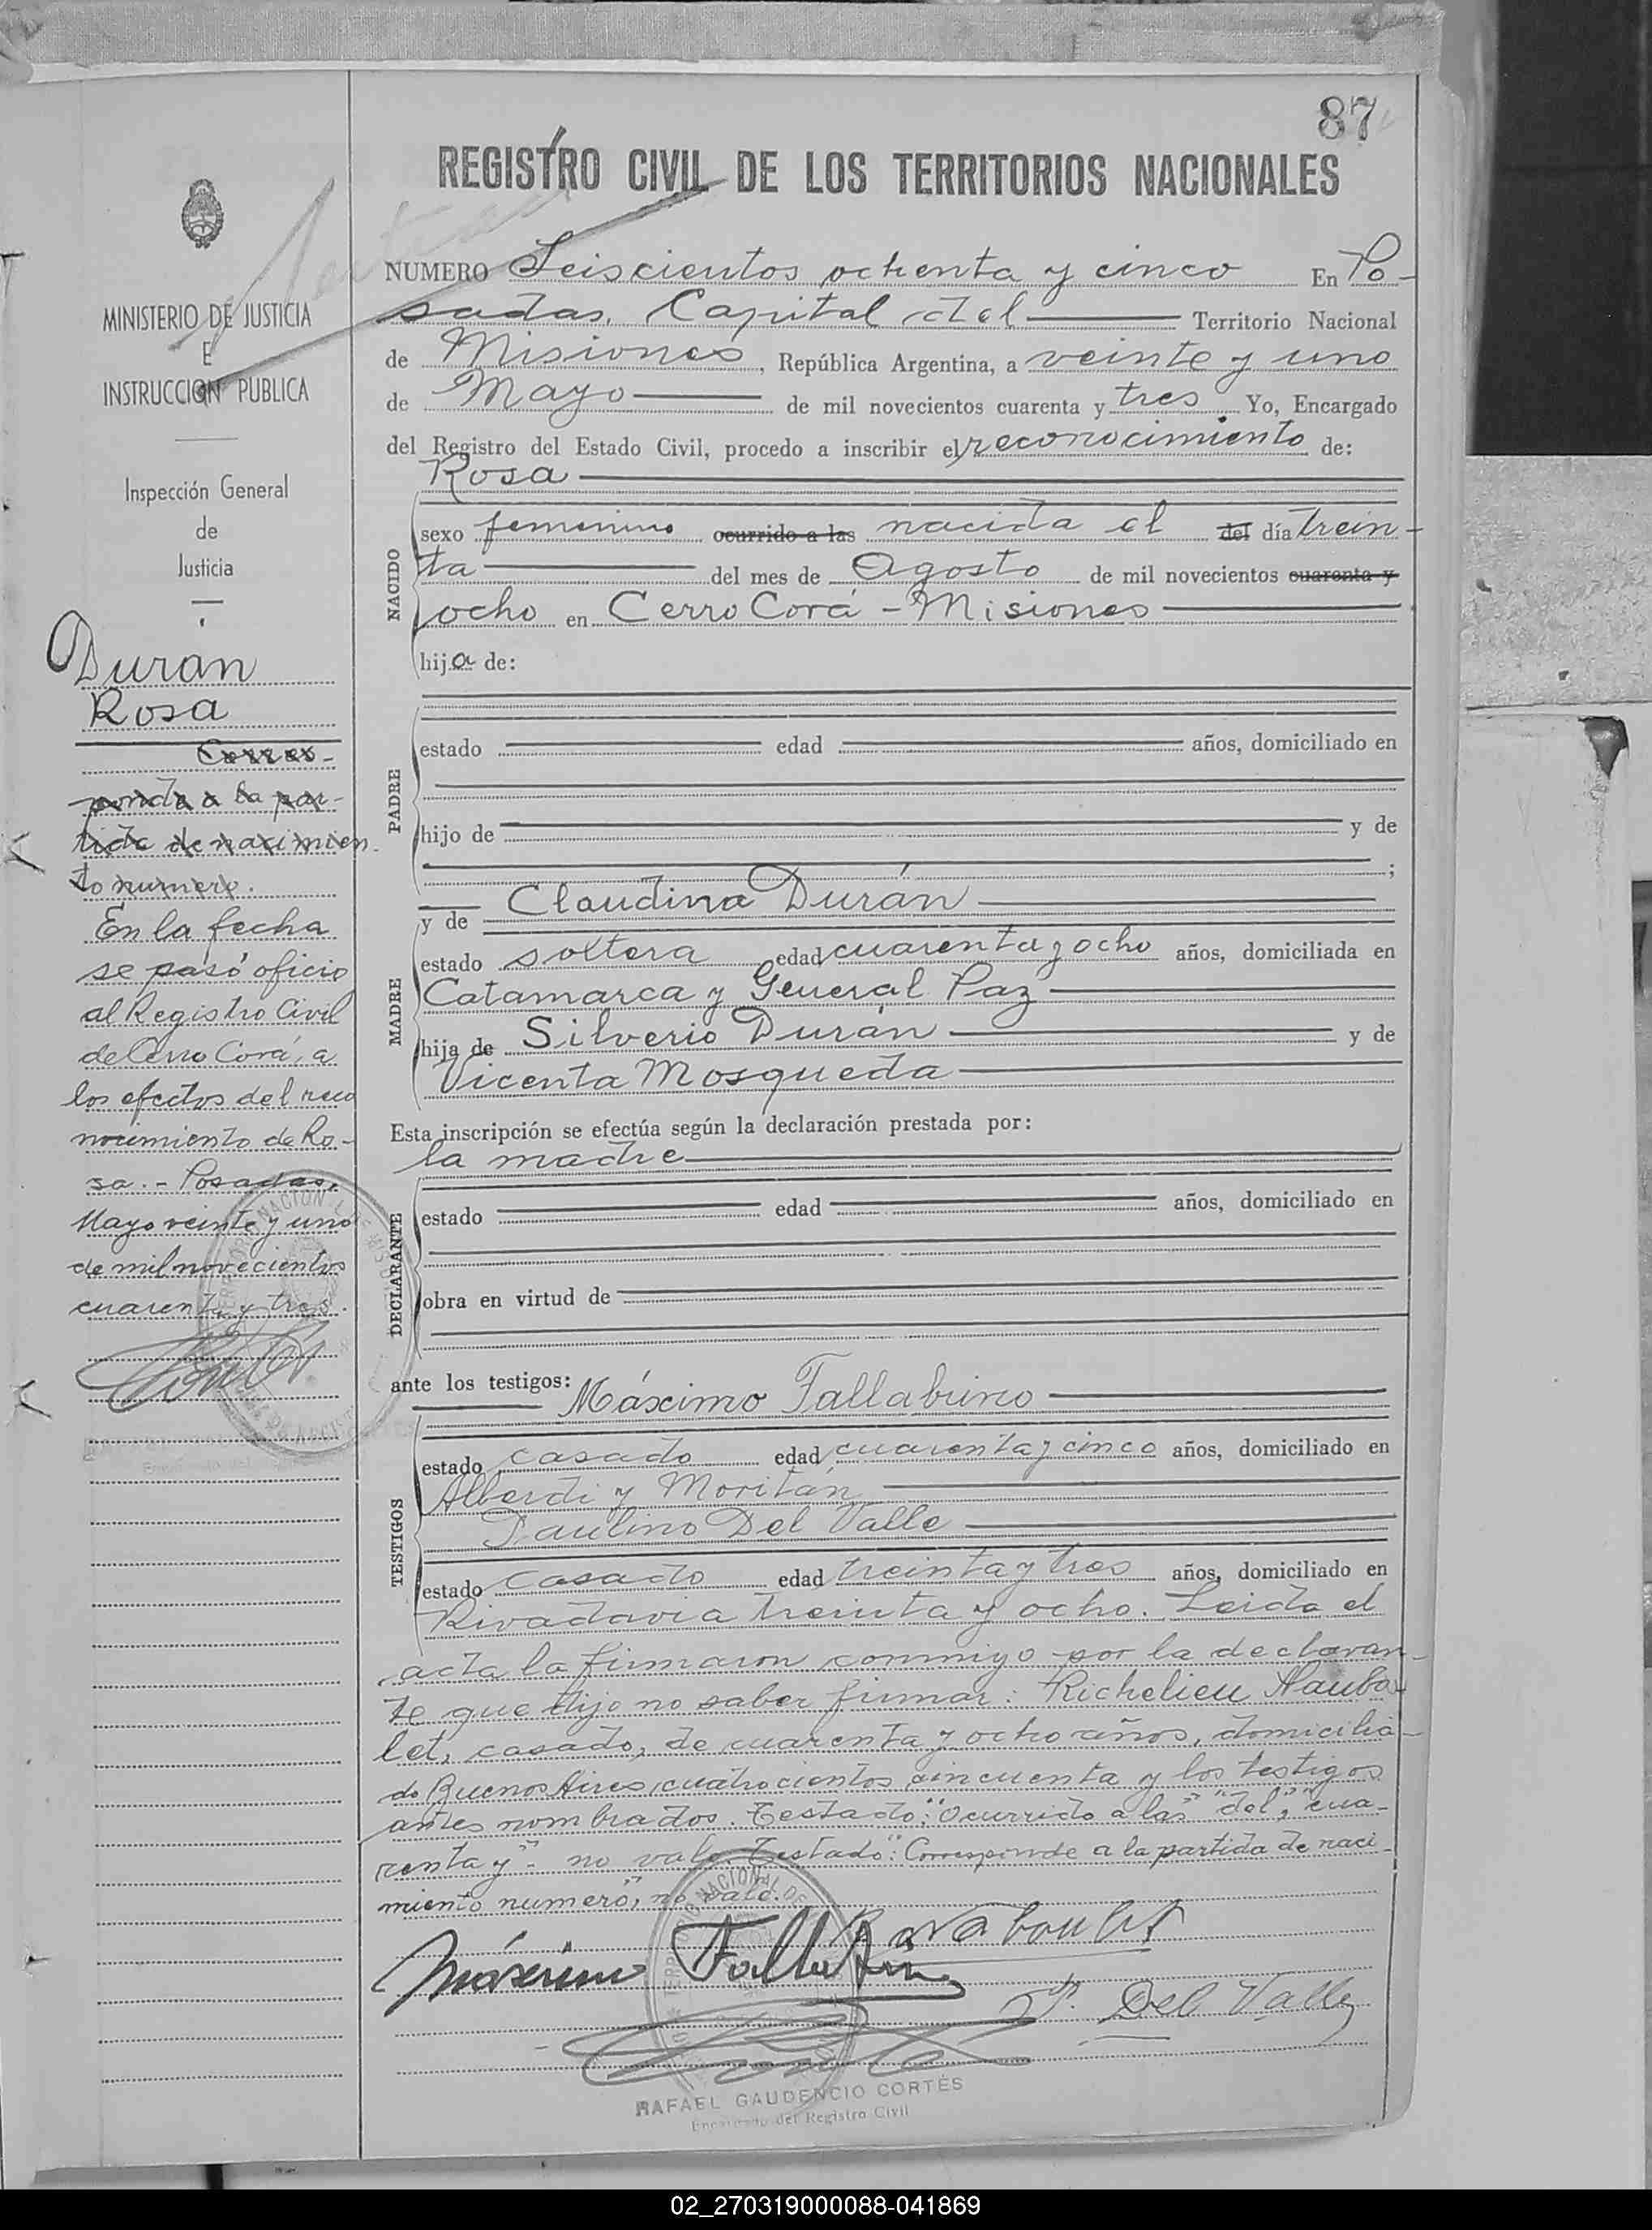 87
REGISTRO CIVIL DE LOS TERRITORIOS NACIONALES
MINISTERIO DE JUSTICIA
E
INSTRUCCION PUBLICA
Inspección General
de
Justicia
Duran
Rosa
Corres-
ponde a la par-
tida de nacimien-
to numero.
En la fecha
se pasó oficio
al Registro Civil
de Cerro Corá, a
los efectos del reco
nocimiento de Ro-
sa. - Posadas,
Mayo veinte y uno
de mil novecientos
cuarenta y tres.
NUMERO Seiscientos ochenta y cinco En Po-
sadas, Capital del Territorio Nacional
de Misiones, República Argentina, a veinte y uno
de Mayo de mil novecientos cuarenta y tres. Yo, Encargado
del Registro del Estado Civil, procedo a inscribir el reconocimiento de:
Rosa
NACIDO
sexo femenino ocurrido a las nacida el del día trein-
ta del mes de Agosto de mil novecientos cuarenta y
ocho en Cerro Corá - Misiones
hija de:
PADRE
estado edad años, domiciliado en
hijo de y de
;
y de Claudina Durán
MADRE
estado soltera edad cuarenta y ocho años, domiciliada en
Catamarca y General Paz
hija de Silverio Durán y de
Vicenta Mosqueda
Esta inscripción se efectúa según la declaración prestada por:
la madre
DECLARANTE
estado edad años, domiciliado en
obra en virtud de
ante los testigos: Máximo Fallabrino
TESTIGOS
estado casado edad cuarenta y cinco años, domiciliado en
Alberdi y Moritán
Paulino Del Valle
estado casado edad treinta y tres años, domiciliado en
Rivadavia treinta y ocho. Leida el
acta la firmaron conmigo por la declaran-
te que dijo no saber firmar: Richelieu Naubo-
let, casado, de cuarenta y ocho años, domicilia-
do Buenos Aires cuatrocientos cincuenta y los testigos
antes nombrados. Testado: "ocurrido a las" "del," "cua-
renta y" - no vale. Testado: "Corresponde a la partida de naci-
miento numero", no vale.
Máximo Fallabrino
P. Del Valle
RAFAEL GAUDENCIO CORTÉS
Encargado del Registro Civil
02_270319000088-041869